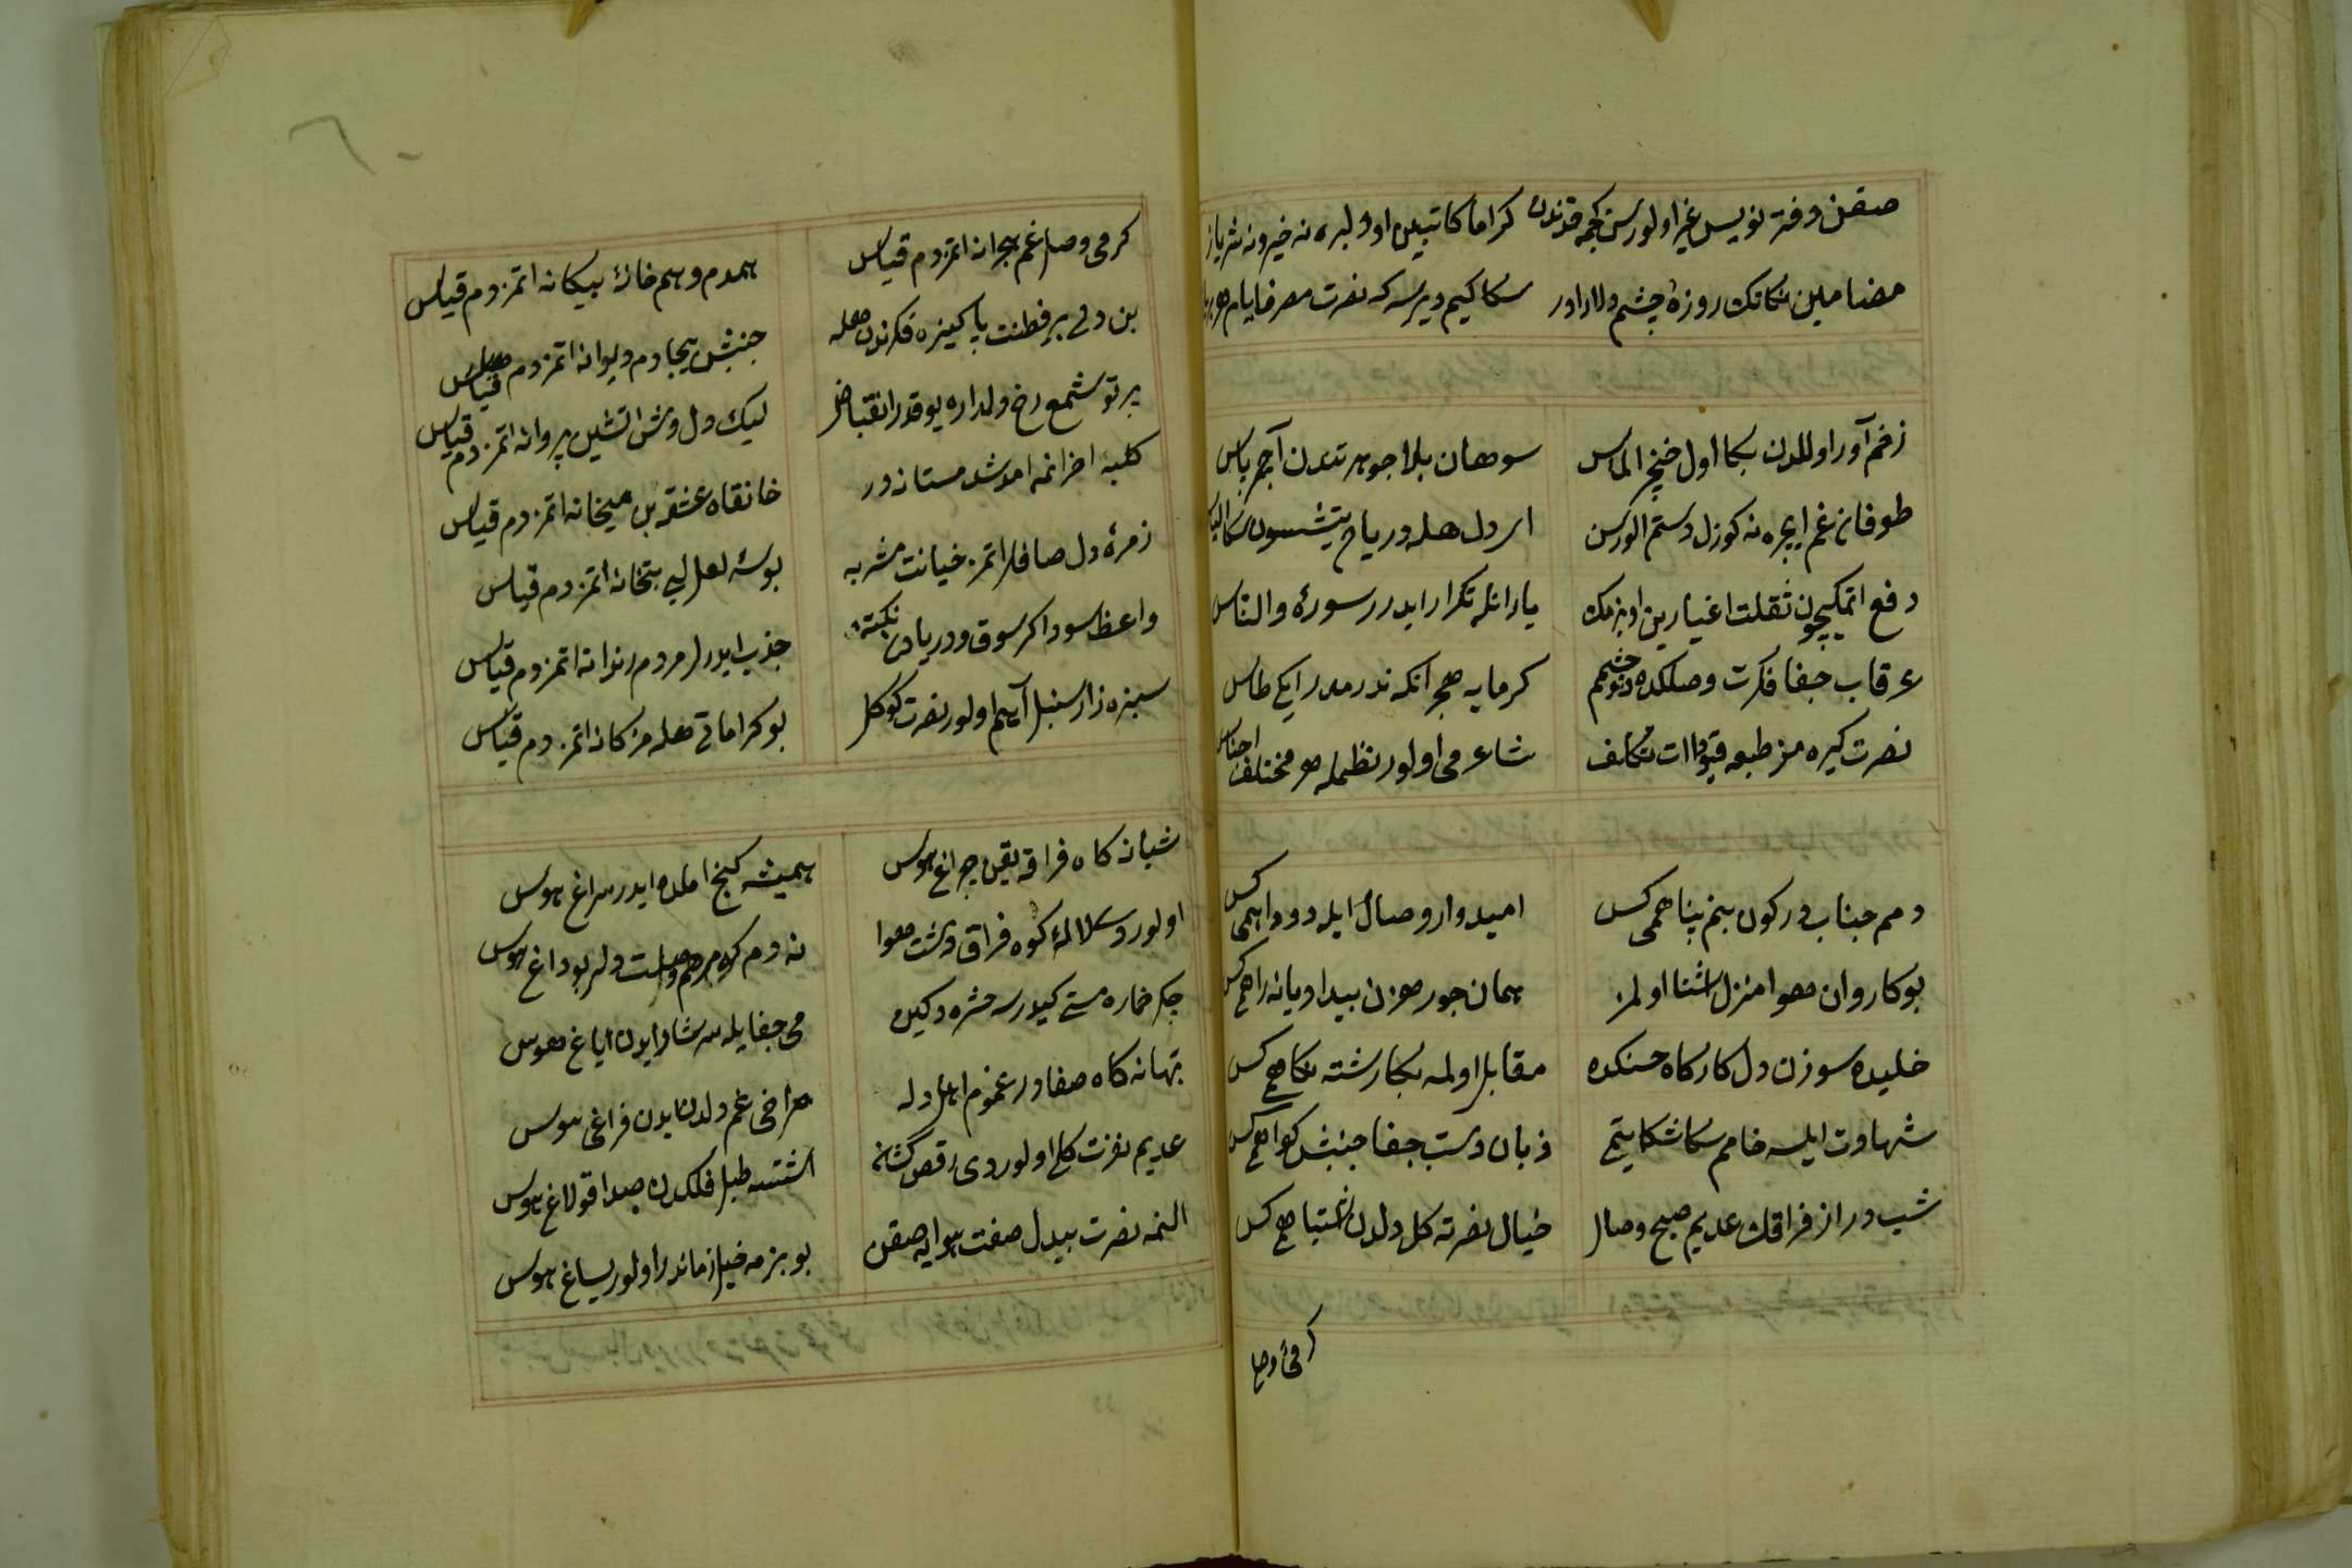 صقن دفتر نویس غیر اولورسن کراما کاتبین اودلبره نه خیر و نه شر یازر
مضامین نکاتک روزهٔ چشم دلارادر سکا کیم دیرسه که نصرت مصرف ایام
زخم آور اولدن بکا اول خنجر الماس سوهان بلا جوهر تندن آجر پاس
طوفان غم ایچره نه کوزل دستم الورسن ای دل هله دریاده یتشسون سکا الیاس
دفع اتمکیچون ثقلت اغیارین اوبزمک یارانله تکرار ایدرر سورهٔ والناس
غرقاب جفا فکرت وصلکده دو چشمم کرمابه هجر انکه ندرمدر ایکی طاس
نصرت کیره مز طبعه قیودات تکلف شاعرمی اولور نظمله هر مختلف اجناس
دمم جناب درکون بنم پناهمی کس امیدوار وصال ایله دود آهمی کس
بو کاروان هوا منزل آشنا اولمز همان جور حزن بیداد یانه راهمی کس
خلیده سوزن دل کارکاه حسنکده مقابل اولمه بکا رشته نکاهمی کس
شهادت ایلسه خامم سکا شکایتمی زبان دست جفا جنبش کواهمی کس
شب دراز فراقک عدیم صبح وصال خیال نصرته کل دلدن اشتباهمی کس
کرمی وصا
کرمی وصل غم هجرانه اتمزدم قیاس همدم و همخانهٔ بیکانه اتمزدم قیاس
بن دلی بر فطنت پاکیزه فکرندن هله جنبش بیجادم دیوانه اتمزدم قیاس
پرتو شمع رخ دلداره یوقدر انقباض لیک دل وش آتشین پروانه اتمزدم قیاس
کلبه احزانمه مستانه در خانقاه عشقه بن میخانه اتمزدم قیاس
زمرهٔ دل صافلر اتمز خیانت مشربه بوسهٔ لعل لبی بتخانه اتمزدم قیاس
واعظ سوداکر سوق و دریادن نکته جذب ایدرلر مردم رندانه اتمزدم قیاس
سبزه زار سنبل آهم اولور نصرت کوکل بو کراماتی هله مژکانه اتمزدم قیاس
شبانه کاه فراقه یقین چراغ هوس همیشه کنج املده ایدر سراغ هوس
اولور لالهٔ کوه فراق و دشت هوا نه دم که مرهم وصلت دلر بو داغ هوس
چکر خماره مستی کیدرسه حشره دکین می جفایله سرشار ایدن ایاغ هوس
بهانه کاه صفادر غموم اهل دله مراخی غم دلدن ایدن فراغی هوس
عدیم نفرت کل اولوردی رقص کنان اشتسه طبل فلکدن صدا قولاغ هوس
النمه نصرت بیدل صفت هوایه صقن بو بزمه خیل زماندر اولور یساغ هوس